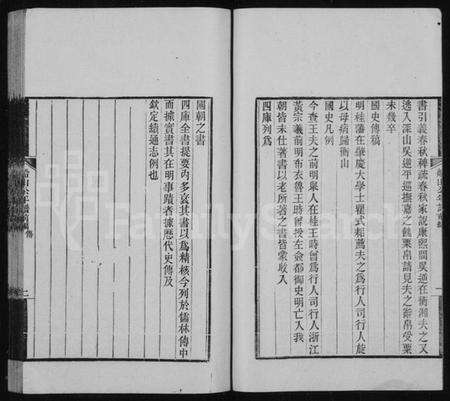 書引義春秋稗疏春秋家說康熙間吳逆在衡湘夫之又
逃入深山吳逆平巡撫嘉之餽粟帛請見夫之辭帛受粟
未幾卒
國史傳稿
明桂藩在肇慶大學士瞿式耜薦夫之為行人司行人旋
以母病歸衡山
國史凡例
今查王夫之前明舉人在桂王時曾為行人司行人浙江
黃宗羲前明布衣魯王時曾授左僉都御史明亡入我
朝皆未仕著書以老所著之書皆蒙收入
四庫列為
國朝之書
四庫全書提要內多裒其書以為精核今列於儒林傳中
而據實書其在明事蹟者據歷代史傳及
欽定續通志例也
二
FamilySearch